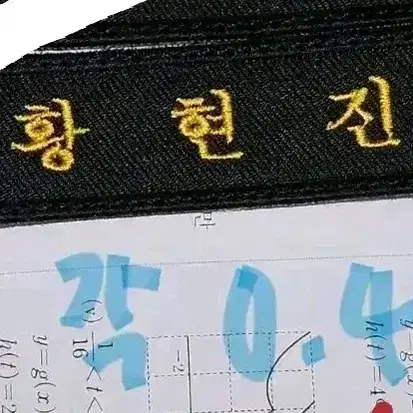 황 현 진
각 0.4
만
(v) 1/16 < t <
y=g(x)
h(t)=2
-2
y=g(x)
h(t)=4